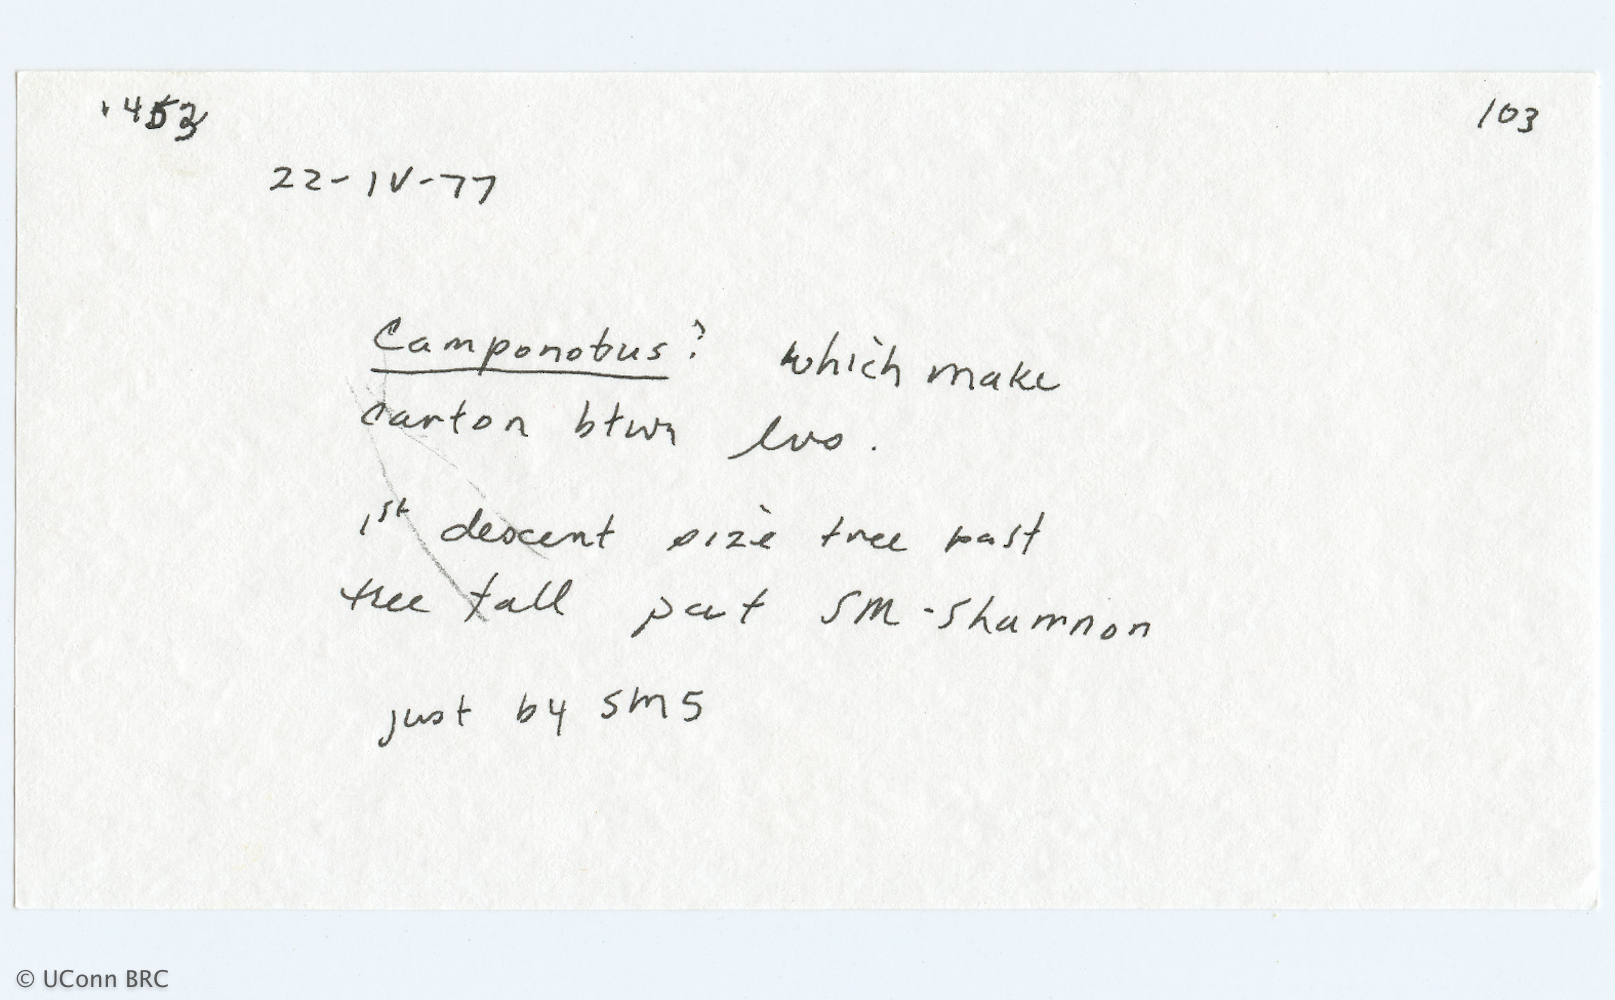 103
22-IV-77
Camponotus? which make
carton btwn lvs.
1st descent size tree past
tree fall part SM-Shannon
just by SM5
© UConn BRC